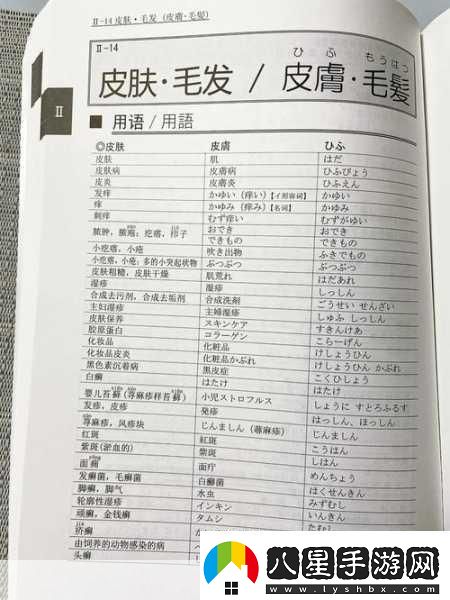 Ⅱ-14 皮肤・毛发（皮膚・毛髪）
Ⅱ-14
ひ ふ もうはつ
皮肤・毛发 / 皮膚・毛髪
Ⅱ
■ 用语 / 用語
◎皮肤 皮膚 ひふ
皮肤 肌 はだ
皮肤病 皮膚病 ひふびょう
皮炎 皮膚炎 ひふえん
发痒 かゆい（痒い）【イ形容词】 かゆい
痒 かゆみ（痒み）【名词】 かゆみ
刺痒 むず痒い むずがゆい
脓肿，脓疱；疙瘩，疹子 おでき おでき
できもの できもの
小疙瘩，小疮 吹き出物 ふきでもの
小疙瘩，小疮；多的小突起状物 ぶつぶつ ぶつぶつ
皮肤粗糙，皮肤干燥 肌荒れ はだあれ
湿疹 湿疹 しっしん
合成去污剂，合成去垢剂 合成洗剤 ごうせい せんざい
主妇湿疹 主婦湿疹 しゅふ しっしん
皮肤保养 スキンケア すきんけあ
胶原蛋白 コラーゲン こらーげん
化妆品 化粧品 けしょうひん
化妆品皮炎 化粧品かぶれ けしょうひん かぶれ
黑色素沉着病 黒皮症 こくひしょう
白癣 はたけ はたけ
婴儿苔藓（荨麻疹样苔藓） 小児ストロフルス しょうに すとろふるす
发疹，皮疹 発疹 はっしん，ほっしん
荨麻疹，风疹块 じんましん（蕁麻疹） じんましん
红斑 紅斑 こうはん
紫斑（淤血的） 紫斑 しはん
面 面疔 めんちょう
发癣菌，毛癣菌 白癬菌 はくせんきん
脚癣，脚气 水虫 みずむし
轮廓性湿疹 インキン いんきん
顽癣，金钱癣 タムシ たむし
疥癣
由饲养的动物感染的病
头癣
八星手游网
www.lyshbx.com